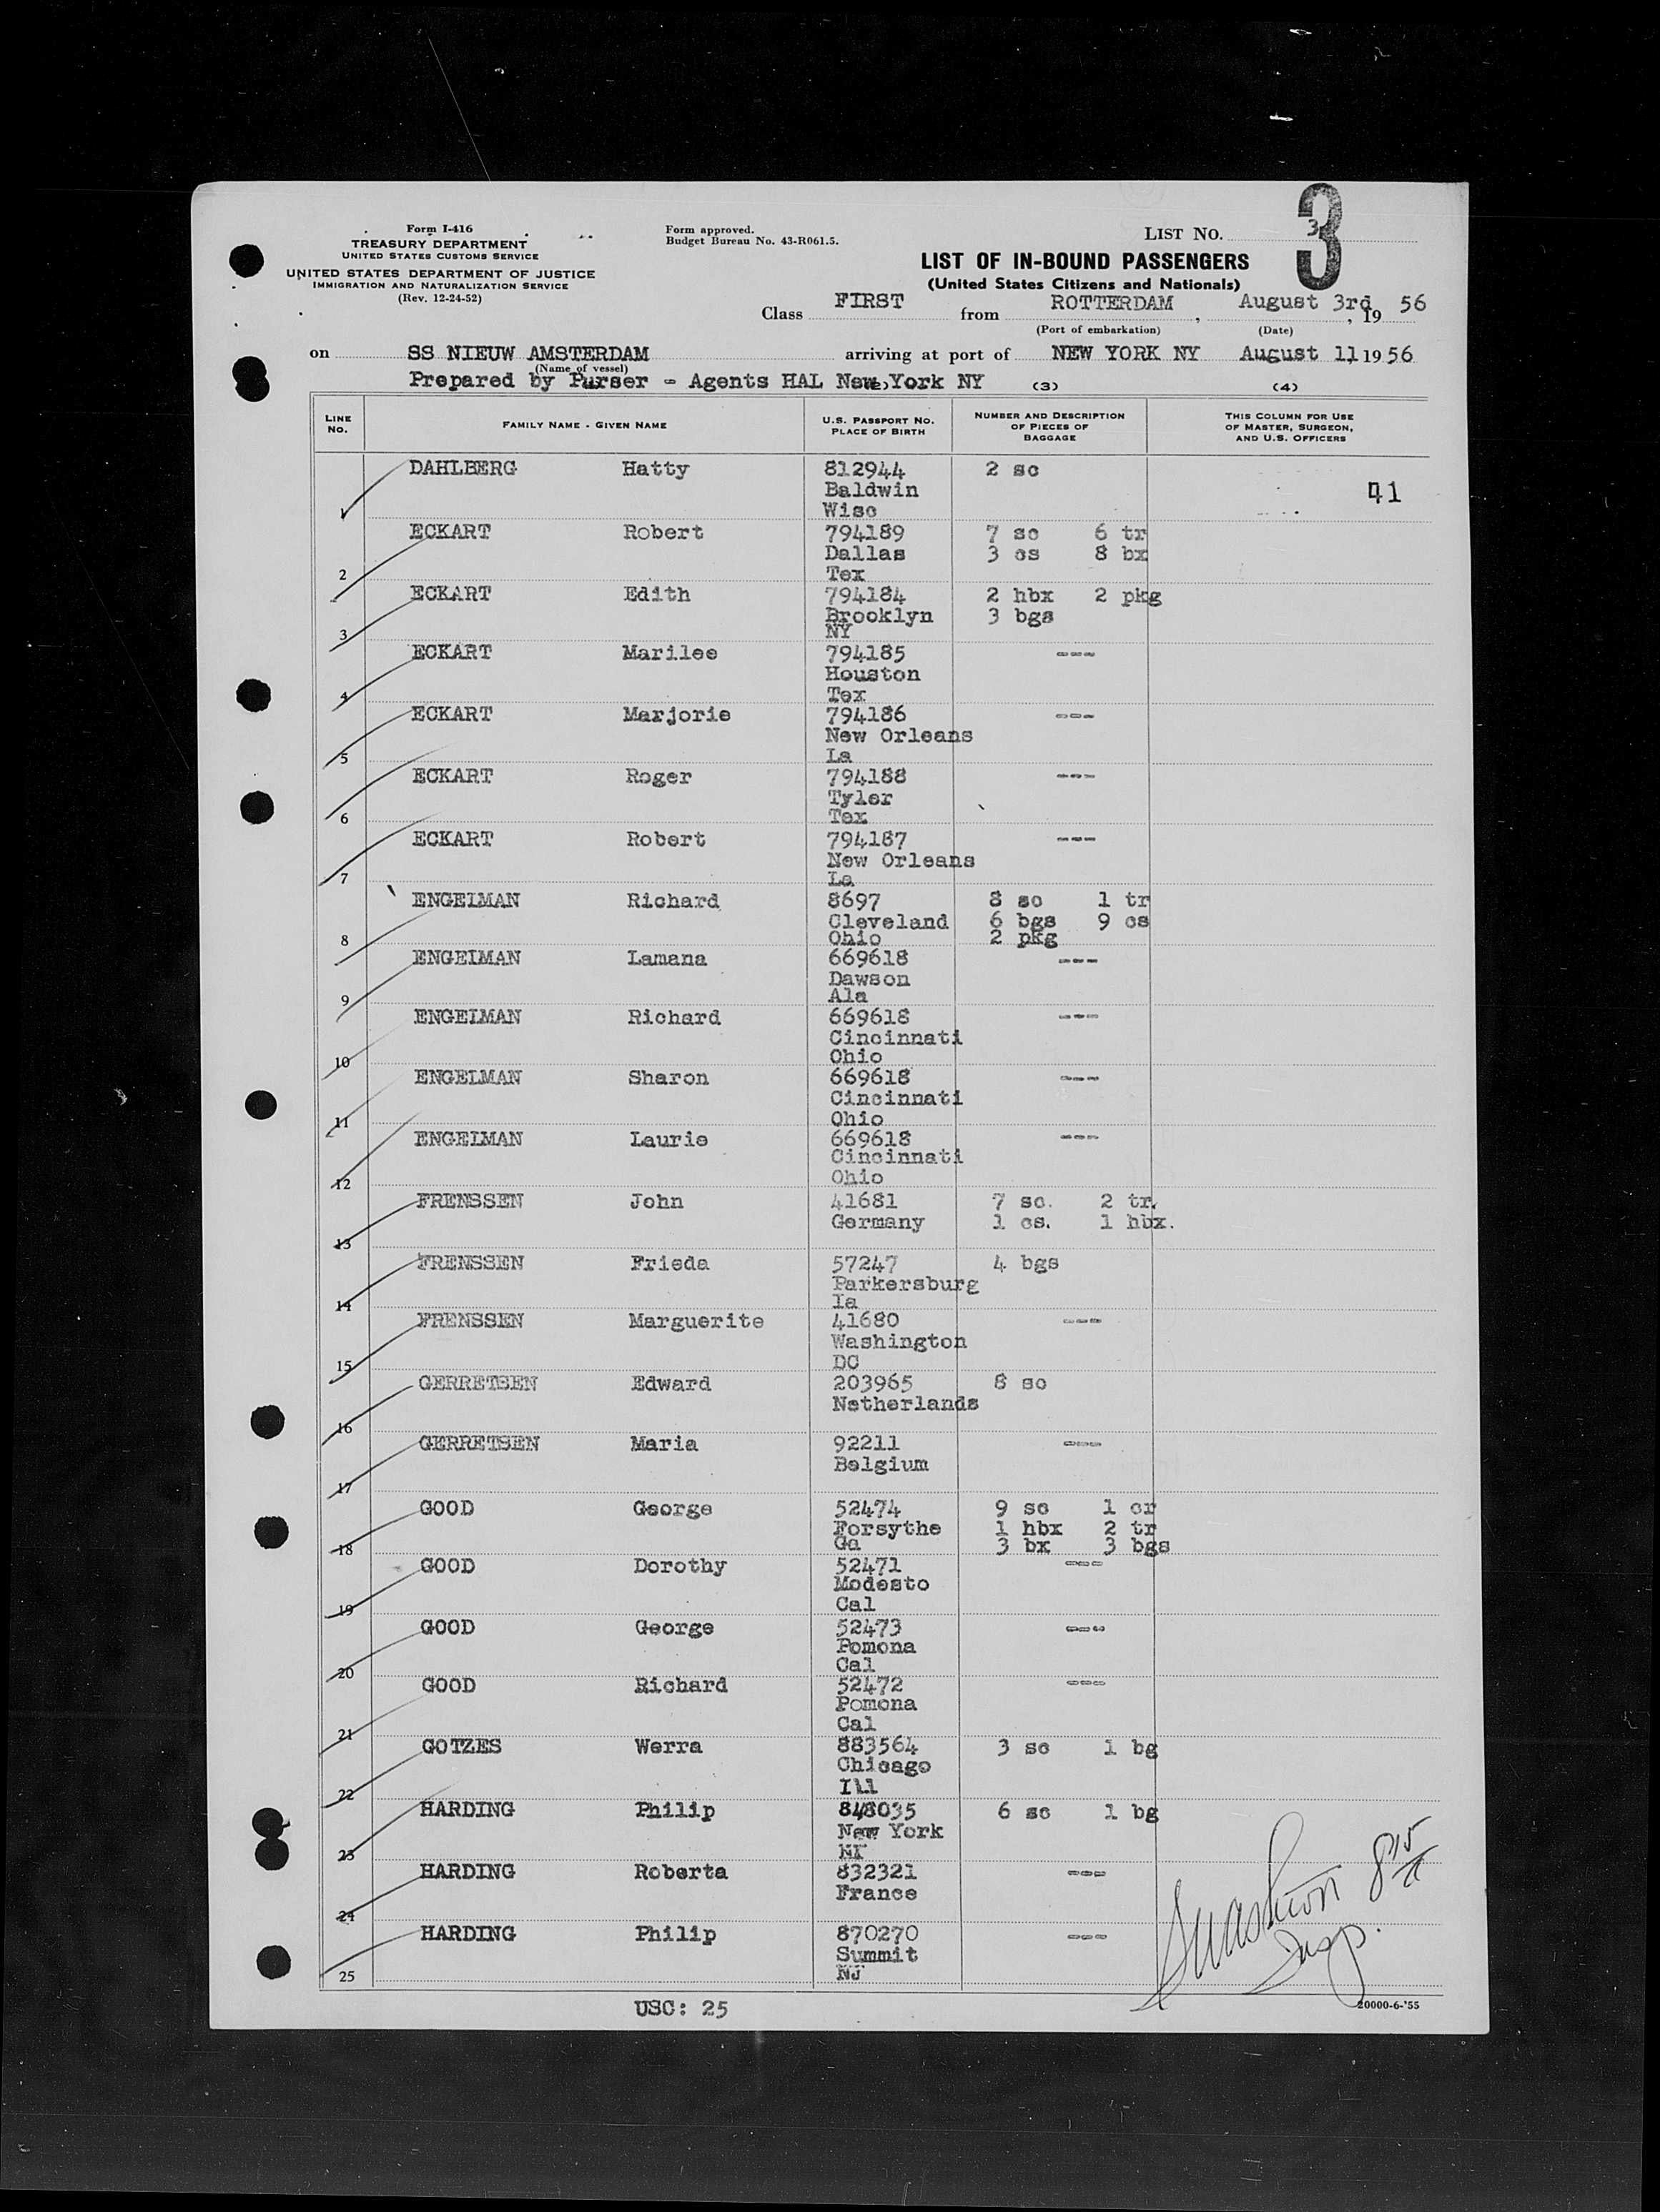 Form I-416
TREASURY DEPARTMENT
UNITED STATES CUSTOMS SERVICE
UNITED STATES DEPARTMENT OF JUSTICE
IMMIGRATION AND NATURALIZATION SERVICE
(Rev. 12-24-52)
Form approved.
Budget Bureau No. 43-R061.5.
LIST NO. 3
3
LIST OF IN-BOUND PASSENGERS
(United States Citizens and Nationals)
Class FIRST from ROTTERDAM, August 3rd, 1956
(Port of embarkation) (Date)
on SS NIEUW AMSTERDAM arriving at port of NEW YORK NY August 11, 1956
(Name of vessel)
Prepared by Purser - Agents HAL New York NY (3) (4)
LINE NO. FAMILY NAME - GIVEN NAME U.S. PASSPORT NO. PLACE OF BIRTH NUMBER AND DESCRIPTION OF PIECES OF BAGGAGE THIS COLUMN FOR USE OF MASTER, SURGEON, AND U.S. OFFICERS
DAHLBERG Hatty 812944 2 sc
Baldwin 41
1 Wisc
ECKART Robert 794189 7 sc 6 tr
Dallas 3 cs 8 bx
2 Tex
ECKART Edith 794184 2 hbx 2 pkg
Brooklyn 3 bgs
3 NY
ECKART Marilee 794185 ---
Houston
4 Tex
ECKART Marjorie 794186 ---
New Orleans
5 La
ECKART Roger 794188 ---
Tyler
6 Tex
ECKART Robert 794187 ---
New Orleans
7 La
ENGELMAN Richard 8697 8 sc 1 tr
Cleveland 6 bgs 9 cs
8 Ohio 2 pkg
ENGELMAN Lamana 669618 ---
Dawson
9 Ala
ENGELMAN Richard 669618 ---
Cincinnati
10 Ohio
ENGELMAN Sharon 669618 ---
Cincinnati
11 Ohio
ENGELMAN Laurie 669618 ---
Cincinnati
12 Ohio
FRENSSEN John 41681 7 sc. 2 tr.
Germany 1 cs. 1 hbx.
13
FRENSSEN Frieda 57247 4 bgs
Parkersburg
14 Ia
FRENSSEN Marguerite 41680 ---
Washington
15 DC
GERRETSEN Edward 203965 8 sc
Netherlands
16
GERRETSEN Maria 92211 ---
Belgium
17
GOOD George 52474 9 sc 1 cr
Forsythe 1 hbx 2 tr
18 Ga 3 bx 3 bgs
GOOD Dorothy 52471 ---
Modesto
19 Cal
GOOD George 52473 ---
Pomona
20 Cal
GOOD Richard 52472 ---
Pomona
21 Cal
GOTZES Werra 883564 3 sc 1 bg
Chicago
22 Ill
HARDING Philip 848035 6 sc 1 bg
New York
23 NY
HARDING Roberta 832321 ---
France
24
HARDING Philip 870270 ---
Summit
25 NJ
Insp.
USC: 25
20000-6-'55